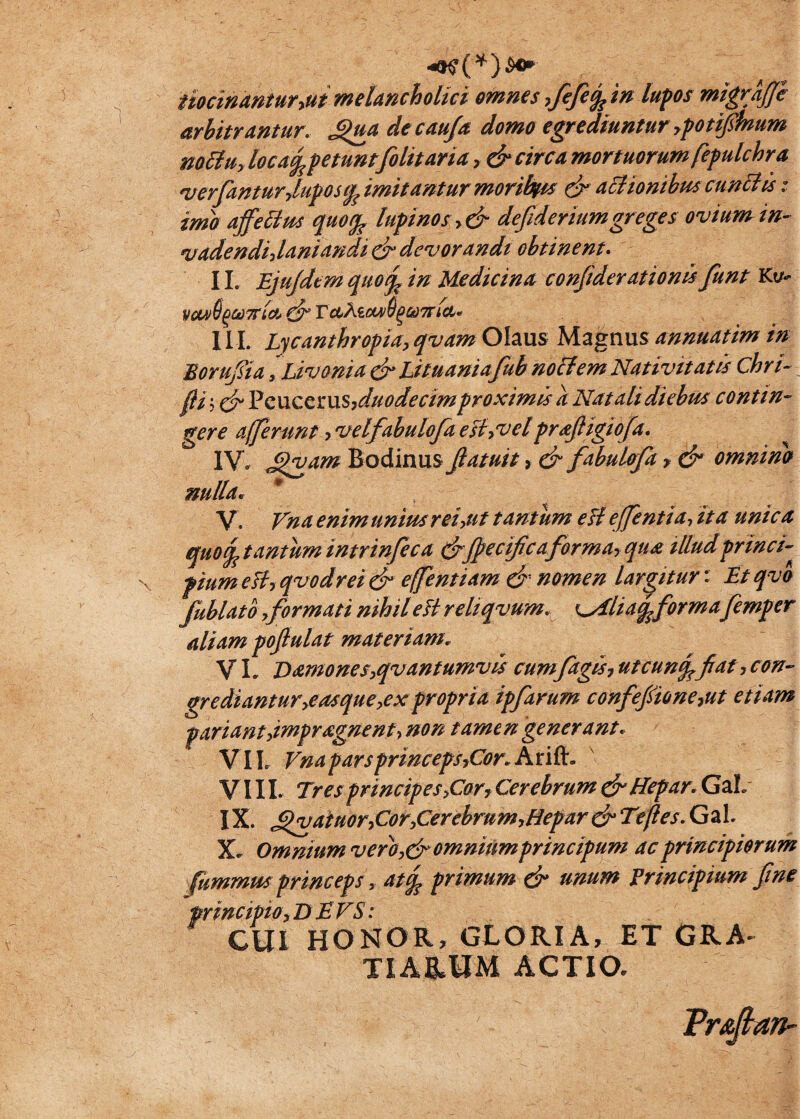 (*)
tiocinantur,ut melancholici omnes ,seseq; in lupos migrasse
arbitrantur. Qua de causa domo egrediuntur ,potißimum
noctu, locaq; petunt solitaria , & circa mortuorum sepulchra
versantur,lupos q; imitantur moribus & actionibus cunctis :
imò affectus quoq; lupinos ,& desiderium greges ovium in-
vadendi,laniandi & devorandi obtinent.
II. Ejusdem quoq; in Medicina considerationis sunt Κυ-
νανθρωπία & Γαλεανθρωπία.
III. Lycanthropia, qvam Olaus Magnus annuatim in
Borußia , Livonia & Lituania sub noctem Nativitatis Chri-
sti ; & Peucerus,duodecim proximis à Natali diebus contin-
gere asserunt , vel fabulosa est,vel præstigiosa.
IV. Qvam Bodinus statuit , & fabulosa , & omninò
nulla.
V. Vna enim unius rei,ut tantùm est essentia, ita unica
quoq; tantùm intrinseca & specifica forma, quæ illud princi-
pium est, qvod rei & essentiam & nomen largitur : Et qvô
sublatô ,formati nihil est reliqvum. Aliaq; forma semper
aliam postulat materiam.
VI. Dæmones,qvantumvis cum sagis, utcunq; fiat , con-
grediantur,easque,ex propria ipsarum confeßione,ut etiam
pariant,imprægnent, non tamen generant.
VII. Vna pars princeps,Cor. Arist.
VIII. Tres principes,Cor, Cerebrum & Hepar. Gal.
IX. Qvatuor,Cor,Cerebrum,Hepar & Testes. Gal.
X. Omnium verò,& omnium principum ac principiorum
summus princeps , atq; primum & unum Principium sine
principio, DEVS :
CUI HONOR, GLORIA, ET GRA-
TIARUM ACTIO.
Præstan-